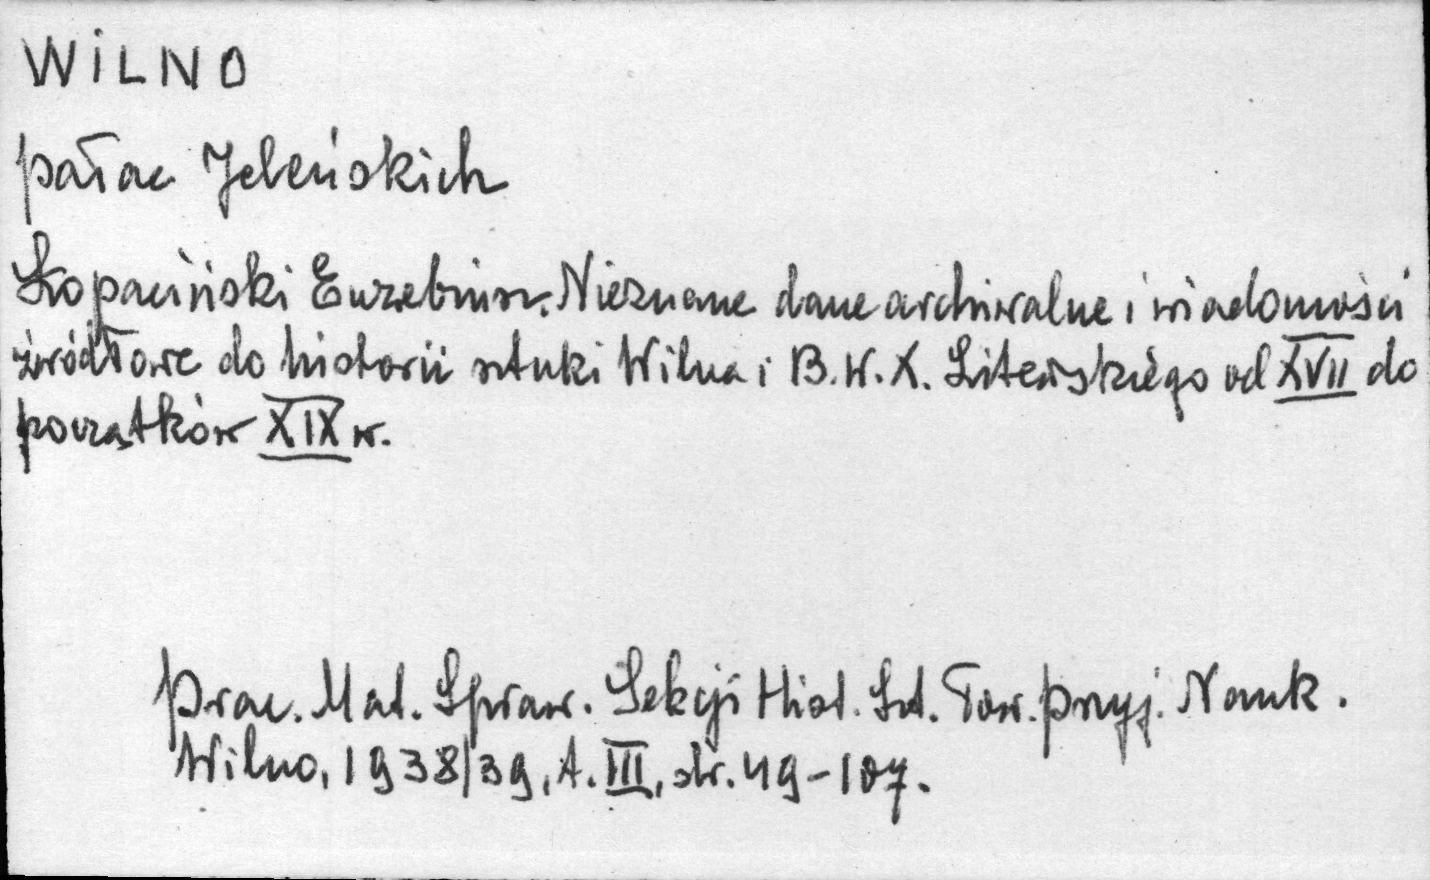 WILNO
pałac Jeleńskich
Łopaciński Euzebiusz. Nieznane dane archiwalne i wiadomości
źródłowe do historii sztuki Wilna i B. W. X. Litewskiego od XVII do
początków XIX w.
Prac. Mat. Spraw. Sekcji Hist. Szt. Tow. Przyj. Nauk.
Wilno, 1938/39, t. III, str. 49-107.